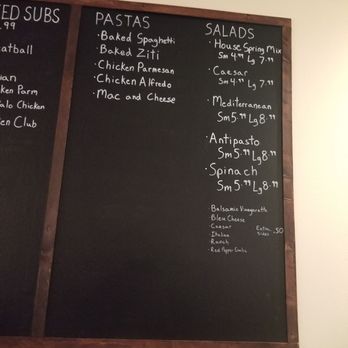 ED SUBS
.99
eatball
ian
ken Parm
alo Chicken
en Club
PASTAS
· Baked Spaghetti
· Baked Ziti
· Chicken Parmesan
· Chicken Alfredo
· Mac and Cheese
SALADS
· House Spring Mix
Sm 4.99 Lg 7.99
· Caesar
Sm 4.99 Lg 7.99
· Mediterranean
Sm 5.99 Lg 8.99
· Antipasto
Sm 5.99 Lg 8.99
· Spinach
Sm 5.99 Lg 8.99
· Balsamic Vinaigrette
· Bleu Cheese
· Caesar
· Italian
· Ranch
· Red Pepper
Extra
Sides .50